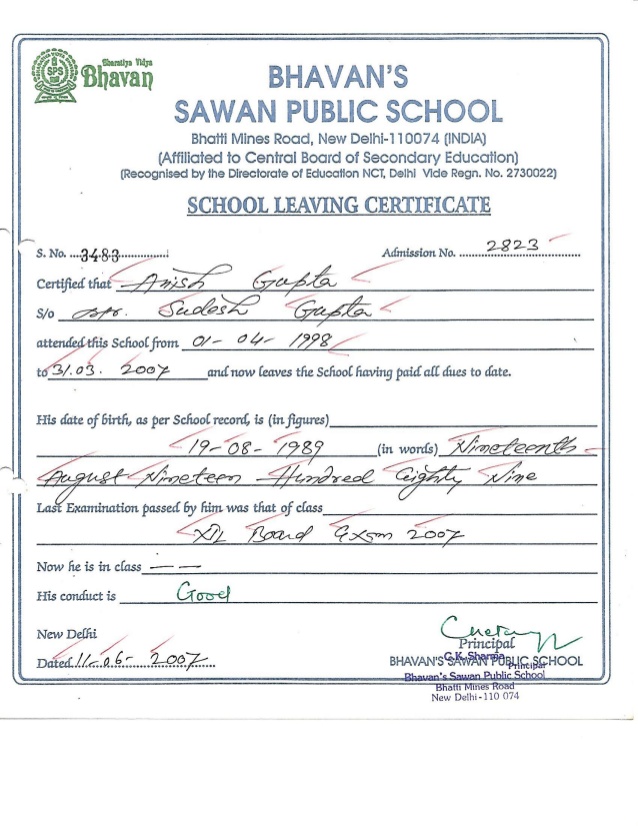 Bharatiya Vidya
Bhavan
SPS
BHAVAN'S
SAWAN PUBLIC SCHOOL
Bhatti Mines Road, New Delhi-110074 (INDIA)
(Affiliated to Central Board of Secondary Education)
(Recognised by the Directorate of Education NCT, Delhi Vide Regn. No. 2730022)
SCHOOL LEAVING CERTIFICATE
S. No. ....3483............... Admission No. ........2823............
Certified that Anish Gupta
S/o Sudesh Gupta
attended this School from 01-04-1998
to 31.03.2007 and now leaves the School having paid all dues to date.
His date of birth, as per School record, is (in figures)
19-08-1989 (in words) Nineteenth
August Nineteen Hundred Eighty Nine
Last Examination passed by him was that of class
XII Board Exam 2007
Now he is in class — —
His conduct is Good
New Delhi
Dated 11-06-2007
Principal
BHAVAN'S SAWAN PUBLIC SCHOOL
G.K. Sharma
Principal
Bhavan's Sawan Public School
Bhatti Mines Road
New Delhi-110 074